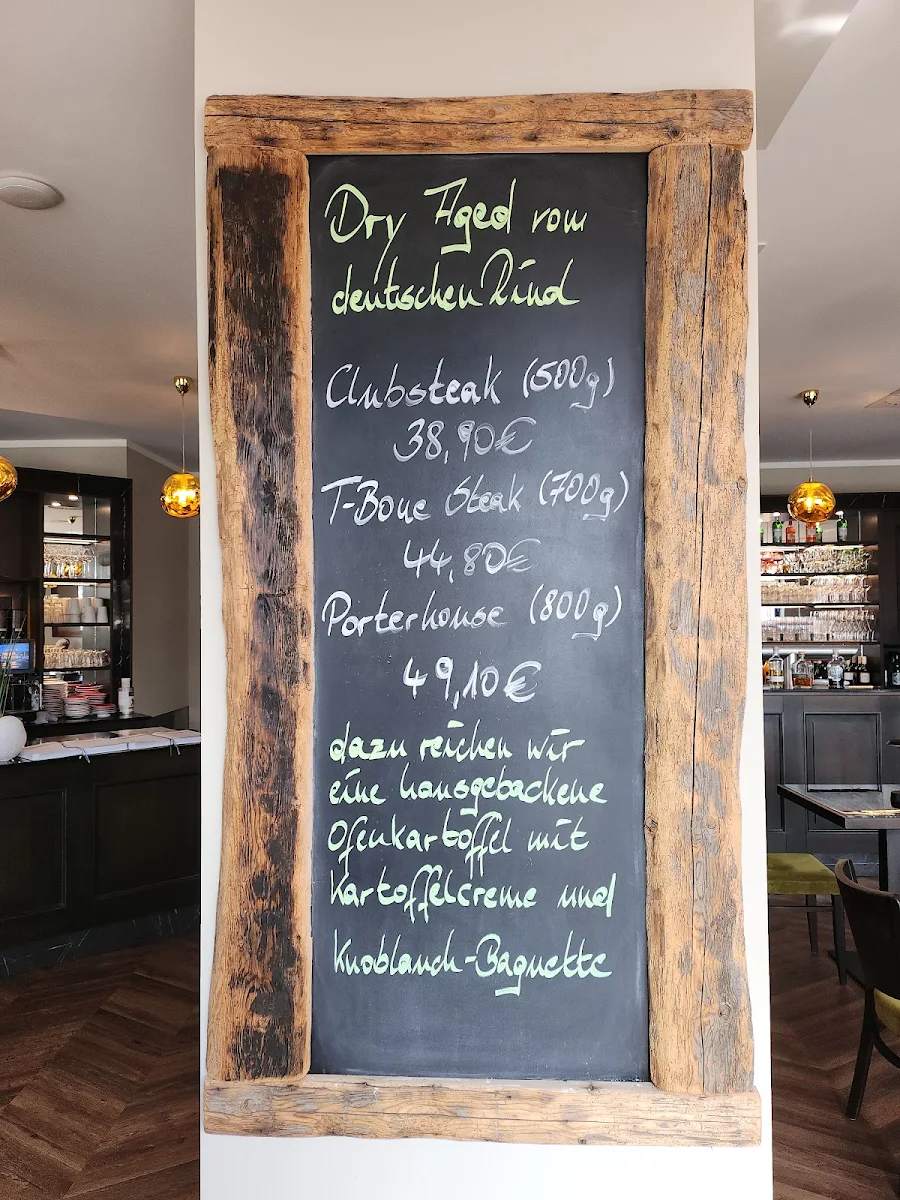 Dry Aged vom
deutschen Rind
Clubsteak (500g)
38,90€
T-Bone Steak (700g)
44,80€
Porterhouse (800g)
49,10€
dazu reichen wir
eine hausgebackene
Ofenkartoffel mit
Kartoffelcreme und
Knoblauch-Baguette